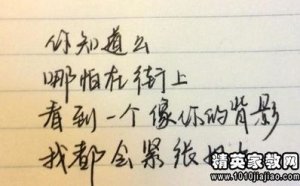 你知道么
哪怕在街上
看到一个像你的背影
我都会紧张好
精英家教网
www.1010jiajiao.com